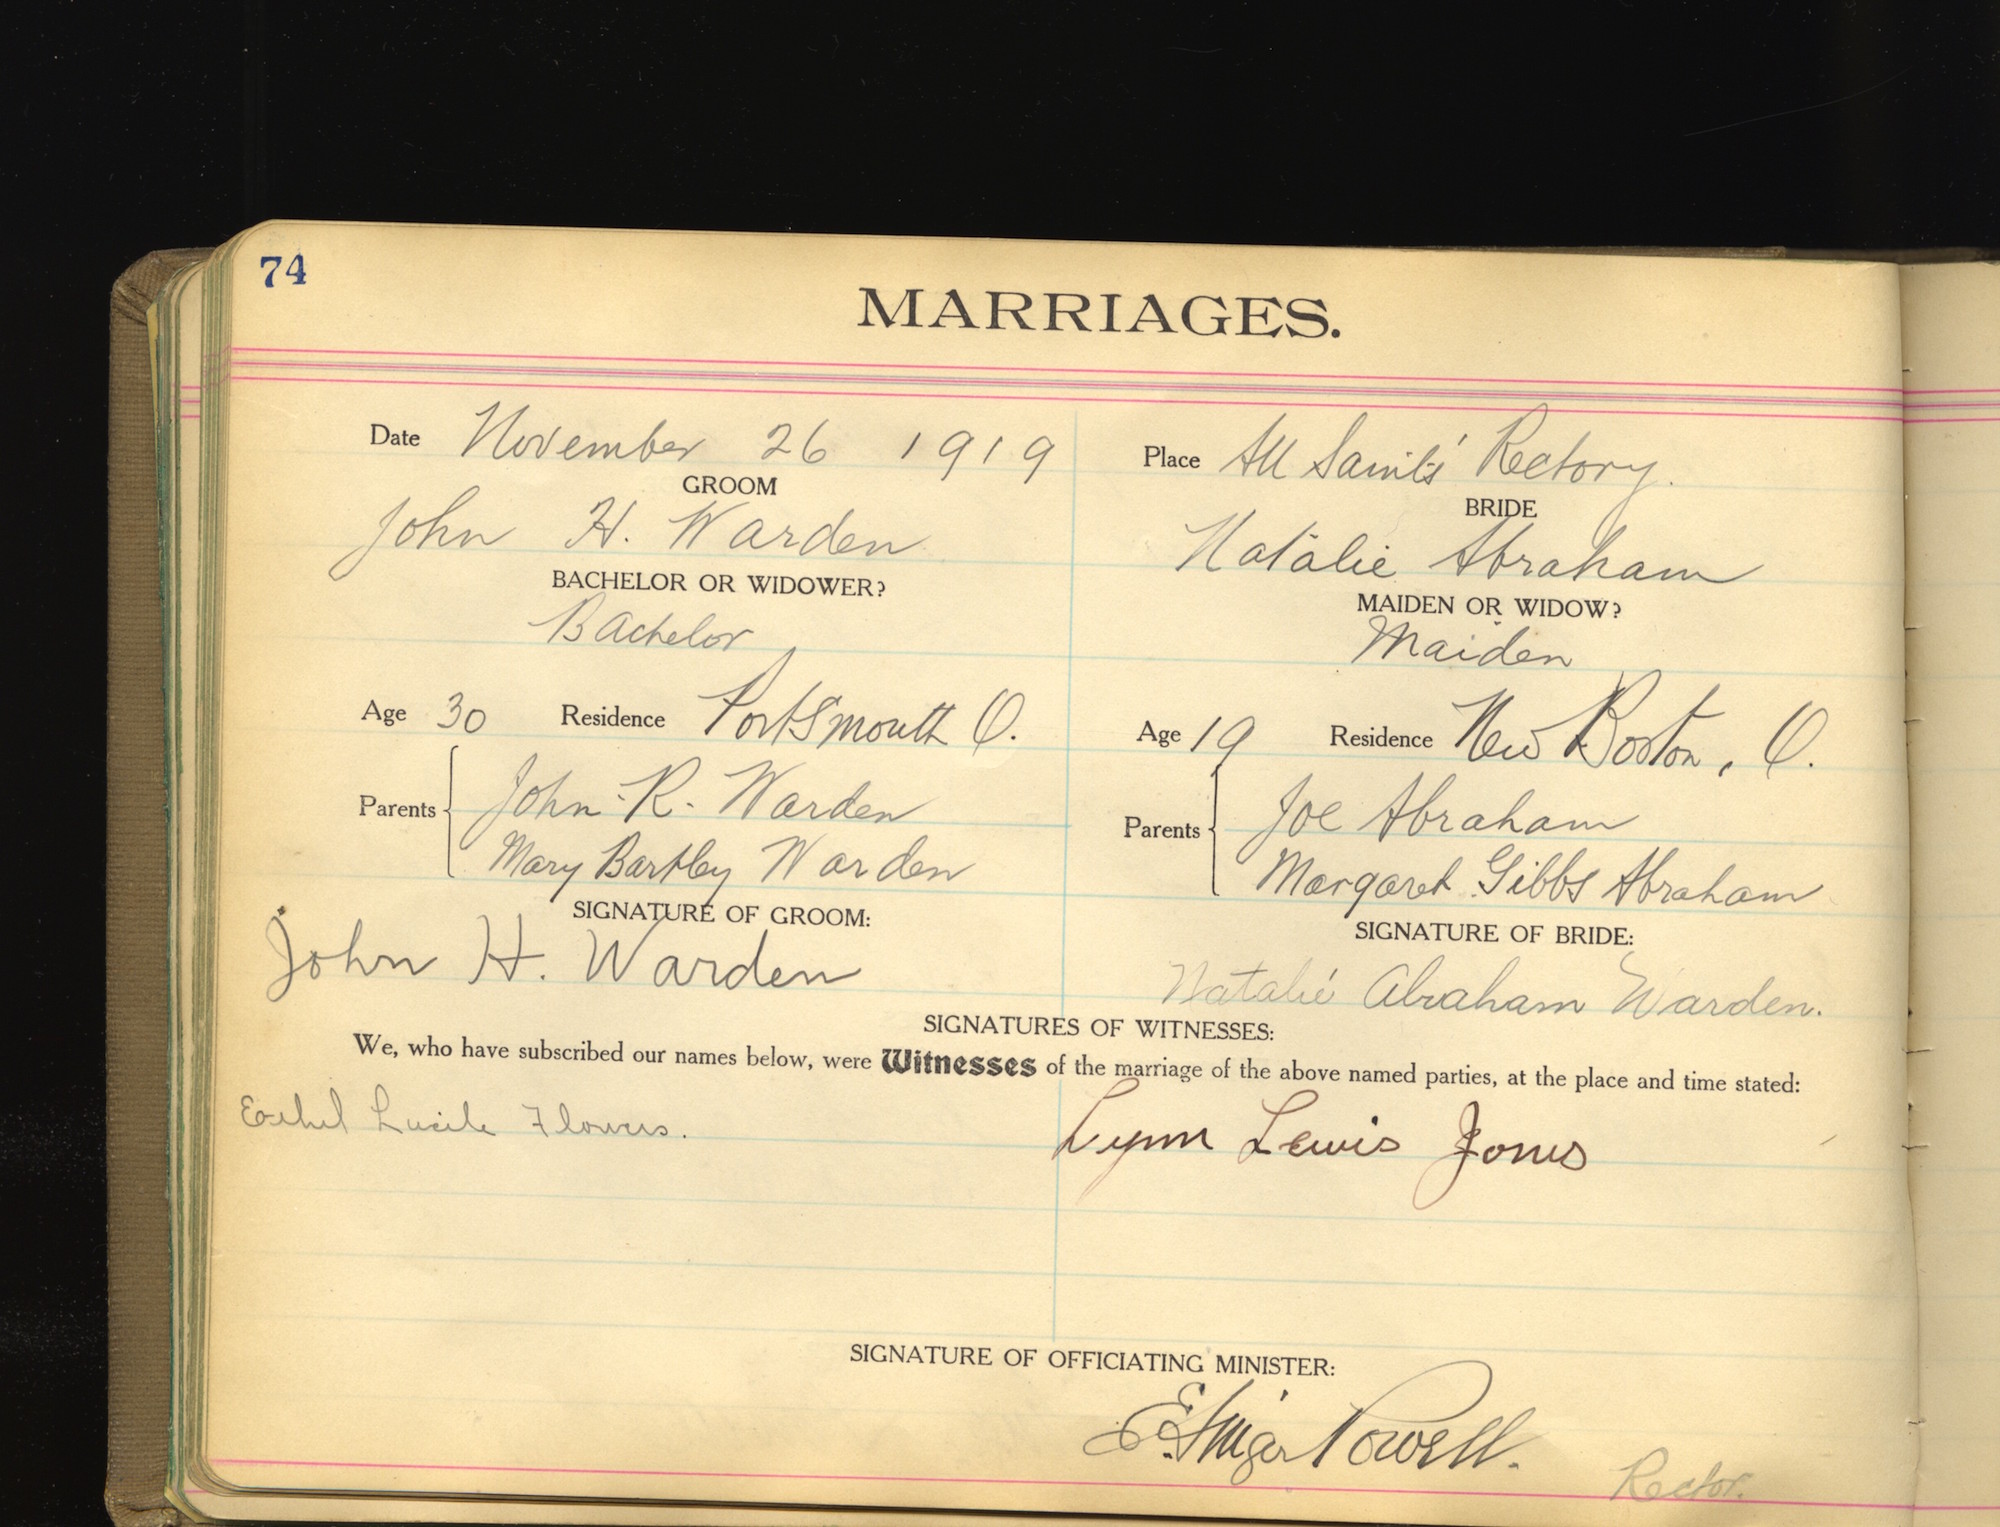 74
MARRIAGES.
Date November 26 1919
Place All Saints' Rectory.
GROOM
John H. Warden
BRIDE
Natalie Abraham
BACHELOR OR WIDOWER?
Bachelor
MAIDEN OR WIDOW?
Maiden
Age 30 Residence Portsmouth O.
Age 19 Residence New Boston, O.
Parents John R. Warden
Mary Bartley Warden
Parents Joe Abraham
Margaret Gibbs Abraham
SIGNATURE OF GROOM:
John H. Warden
SIGNATURE OF BRIDE:
Natalie Abraham Warden.
SIGNATURES OF WITNESSES:
We, who have subscribed our names below, were Witnesses of the marriage of the above named parties, at the place and time stated:
Lucile Flowers.
Lynn Lewis Jones
SIGNATURE OF OFFICIATING MINISTER:
Powell.
Rector.